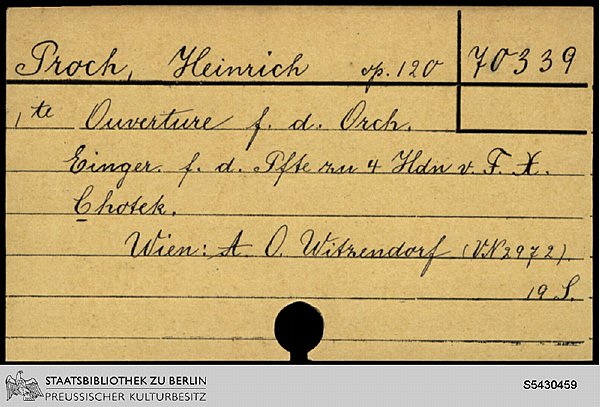 Proch, Heinrich op. 120 70339
1te Ouverture f. d. Orch.
Einger. f. d. Pfte zu 4 Hdn v. F. X.
Chotek.
Wien: A. O. Witzendorf (V.N 2972).
19 S.
STAATSBIBLIOTHEK ZU BERLIN
PREUSSISCHER KULTURBESITZ
S5430459